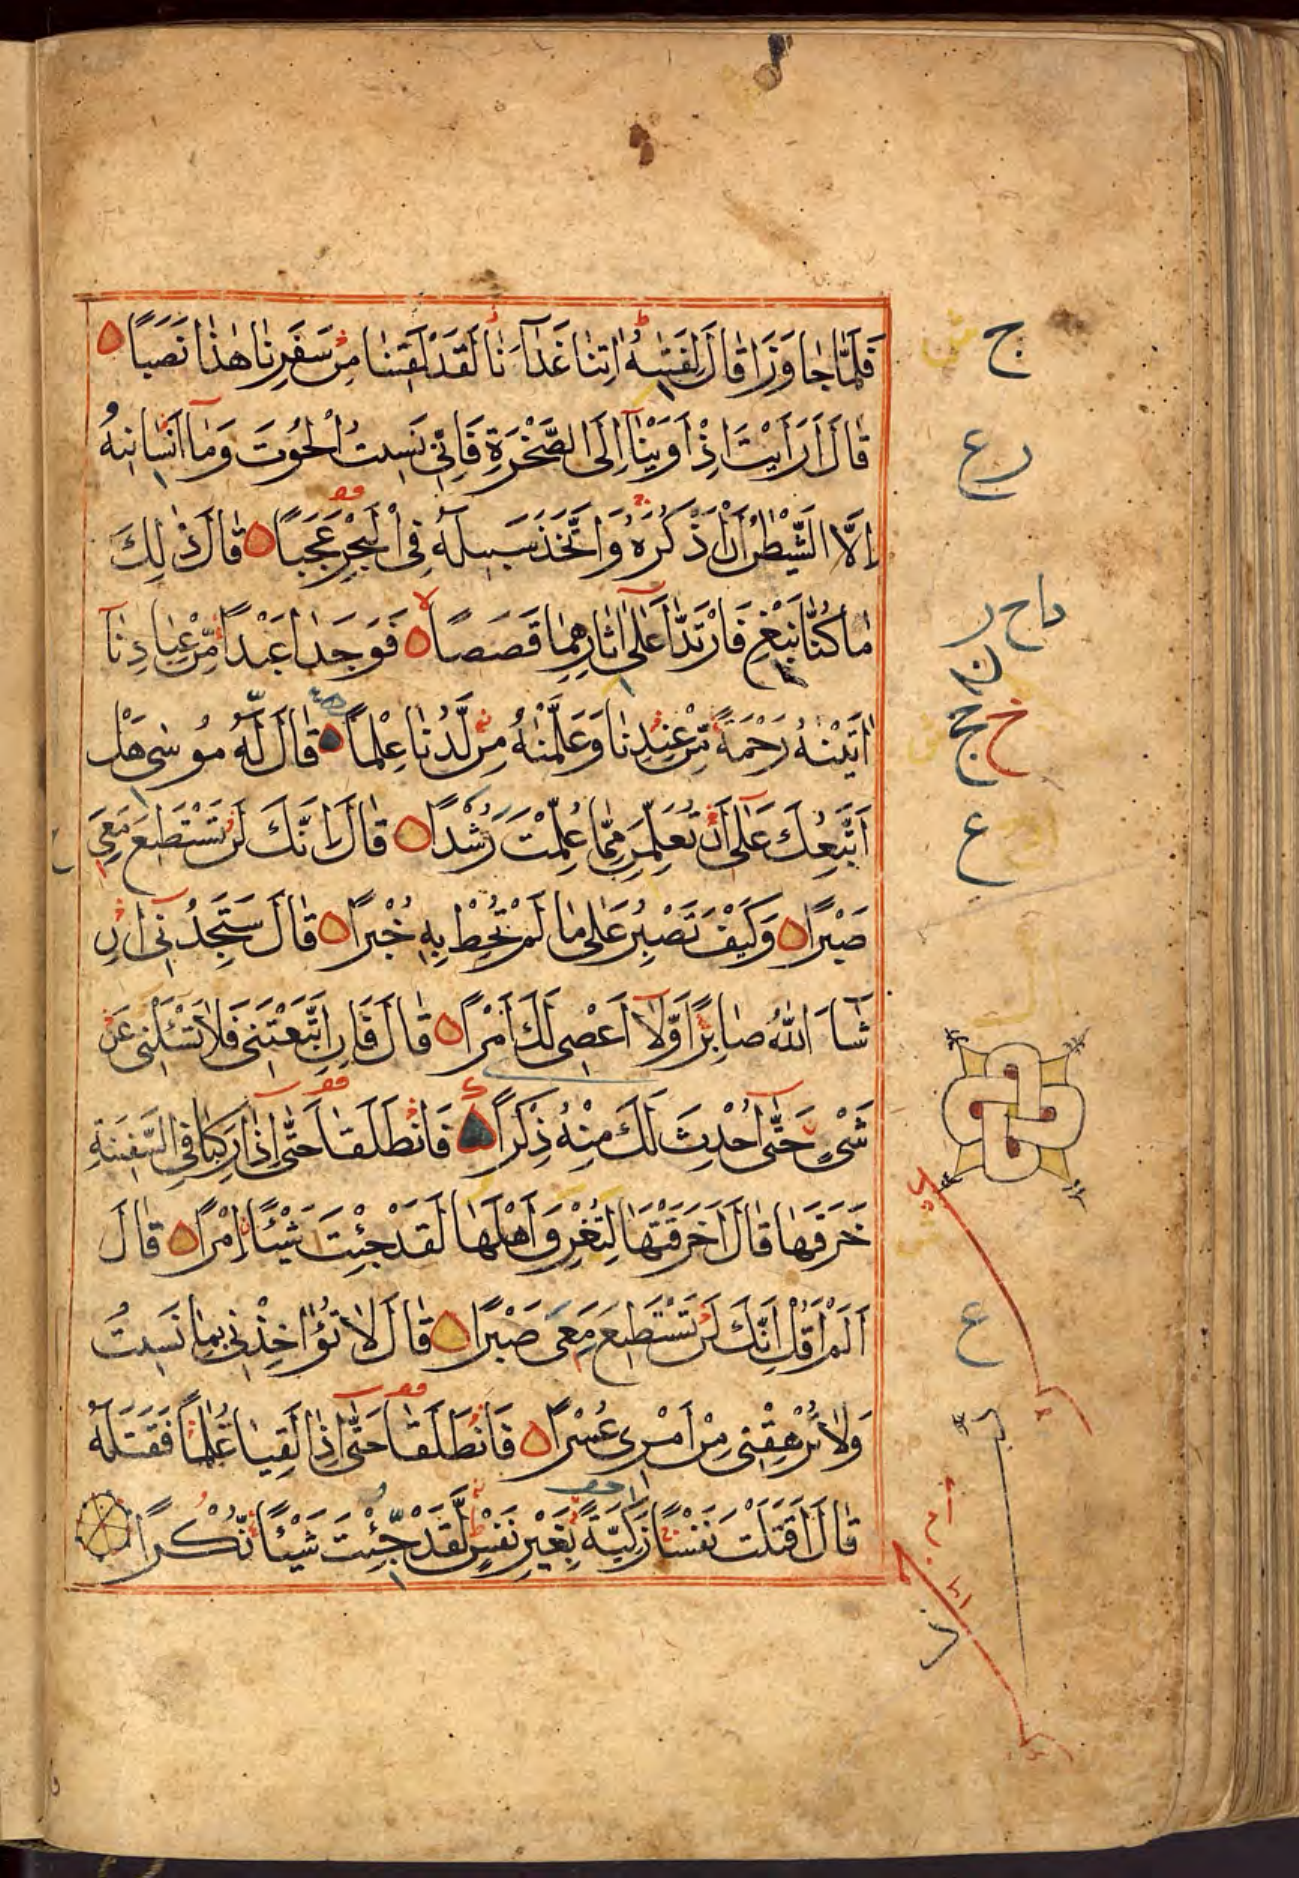 فَلَمَّا جَاوَزَا قَالَ لِفَتٰىهُ اٰتِنَا غَدَآءَنَا لَقَدْ لَقِيْنَا مِنْ سَفَرِنَا هٰذَا نَصَبًا
قَالَ اَرَاَيْتَ اِذْ اَوَيْنَآ اِلَى الصَّخْرَةِ فَاِنِّى نَسِيتُ الْحُوتَ وَمَآ اَنْسٰانِيهُ
اِلَّا الشَّيْطٰنُ اَنْ اَذْكُرَهُ وَاتَّخَذَ سَبِيلَهُ فِى الْبَحْرِ عَجَبًا قَالَ ذٰلِكَ
مَا كُنَّا نَبْغِ فَارْتَدَّا عَلٰٓى اٰثَارِهِمَا قَصَصًا فَوَجَدَا عَبْدًا مِّنْ عِبَادِنَآ
اٰتَيْنٰهُ رَحْمَةً مِّنْ عِنْدِنَا وَعَلَّمْنٰهُ مِنْ لَّدُنَّا عِلْمًا قَالَ لَهُ مُوسٰى هَلْ
اَتَّبِعُكَ عَلٰٓى اَنْ تُعَلِّمَنِ مِمَّا عُلِّمْتَ رُشْدًا قَالَ اِنَّكَ لَنْ تَسْتَطِيعَ مَعِىَ
صَبْرًا وَكَيْفَ تَصْبِرُ عَلٰى مَا لَمْ تُحِطْ بِهِ خُبْرًا قَالَ سَتَجِدُنِىٓ اِنْ
شَآءَ اللّٰهُ صَابِرًا وَّلَآ اَعْصِى لَكَ اَمْرًا قَالَ فَاِنِ اتَّبَعْتَنِى فَلَا تَسْـَٔلْنِى عَنْ
شَىْءٍ حَتّٰٓى اُحْدِثَ لَكَ مِنْهُ ذِكْرًا فَانْطَلَقَا حَتّٰٓى اِذَا رَكِبَا فِى السَّفِينَةِ
خَرَقَهَا قَالَ اَخَرَقْتَهَا لِتُغْرِقَ اَهْلَهَا لَقَدْ جِئْتَ شَيْـًٔا اِمْرًا قَالَ
اَلَمْ اَقُلْ اِنَّكَ لَنْ تَسْتَطِيعَ مَعِىَ صَبْرًا قَالَ لَا تُؤَاخِذْنِى بِمَا نَسِيتُ
وَلَا تُرْهِقْنِى مِنْ اَمْرِى عُسْرًا فَانْطَلَقَا حَتّٰٓى اِذَا لَقِيَا غُلٰمًا فَقَتَلَهُ
قَالَ اَقَتَلْتَ نَفْسًا زَكِيَّةً بِغَيْرِ نَفْسٍ لَّقَدْ جِئْتَ شَيْـًٔا نُّكْرًا
ج
ع
ع
ع